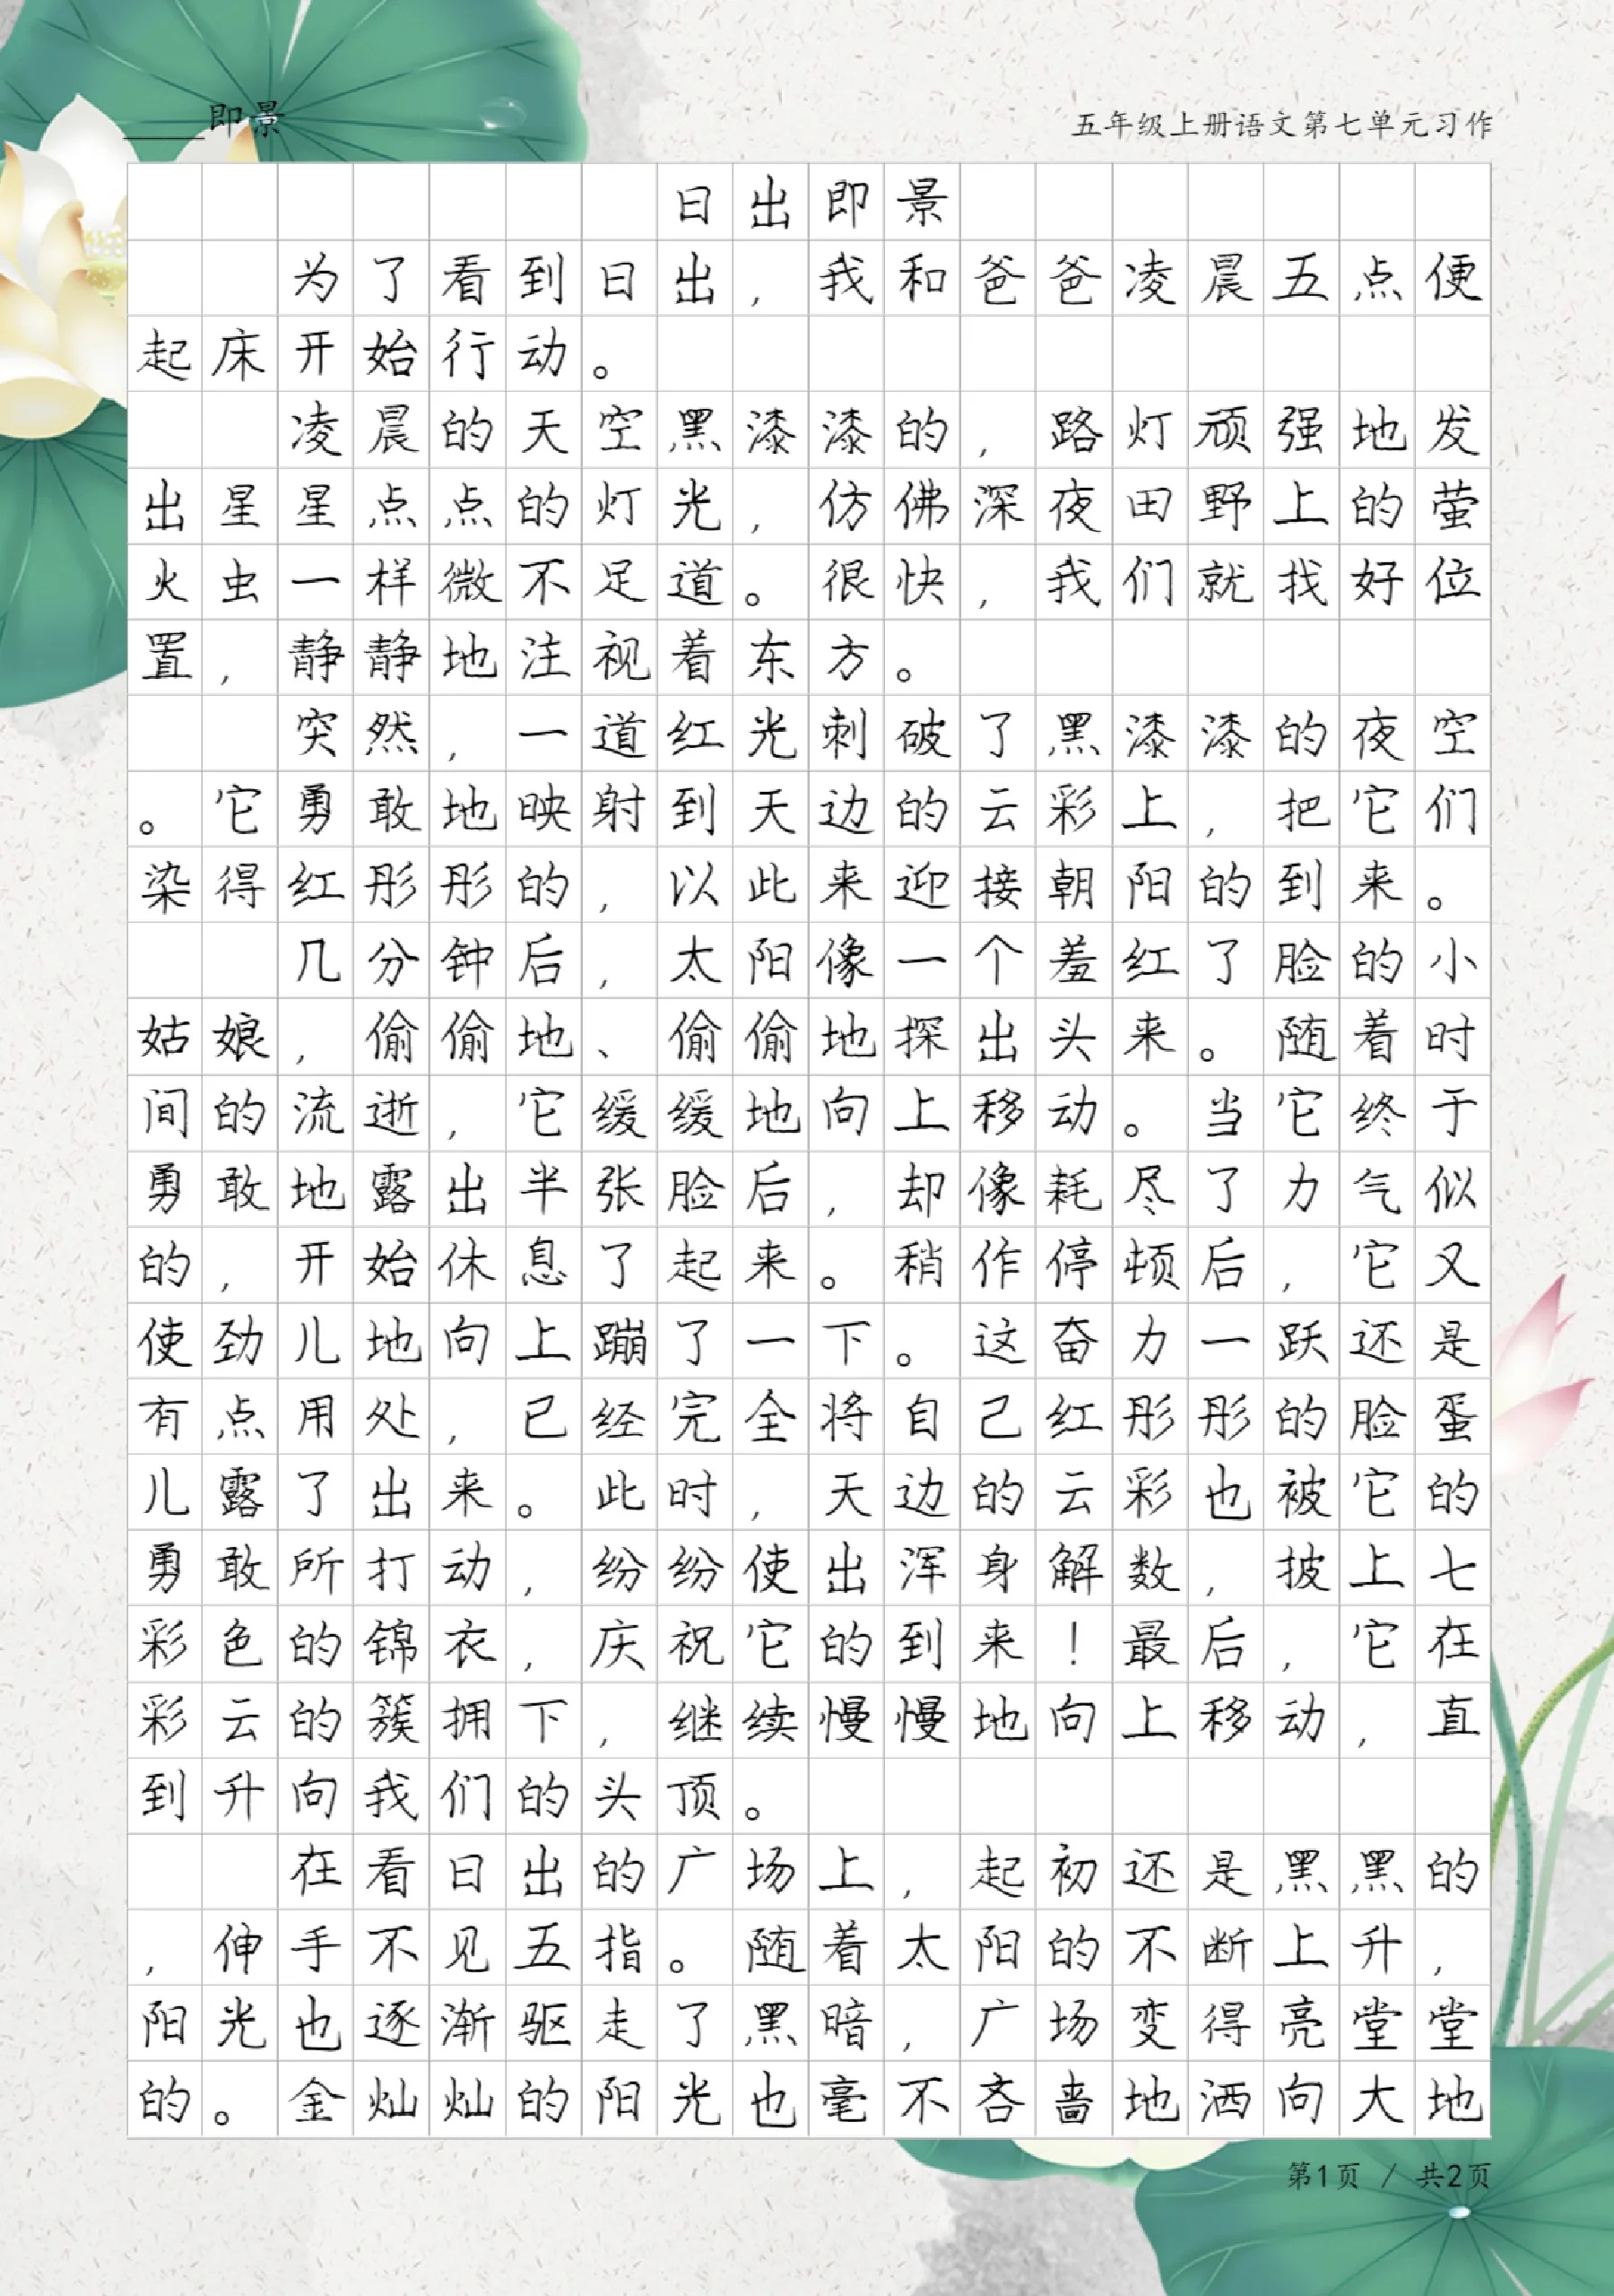 ____即景
五年级上册语文第七单元习作
日出即景
为了看到日出，我和爸爸凌晨五点便
起床开始行动。
凌晨的天空黑漆漆的，路灯顽强地发
出星星点点的灯光，仿佛深夜田野上的萤
火虫一样微不足道。很快，我们就找好位
置，静静地注视着东方。
突然，一道红光刺破了黑漆漆的夜空
。它勇敢地映射到天边的云彩上，把它们
染得红彤彤的，以此来迎接朝阳的到来。
几分钟后，太阳像一个羞红了脸的小
姑娘，偷偷地、偷偷地探出头来。随着时
间的流逝，它缓缓地向上移动。当它终于
勇敢地露出半张脸后，却像耗尽了力气似
的，开始休息了起来。稍作停顿后，它又
使劲儿地向上蹦了一下。这奋力一跃还是
有点用处，已经完全将自己红彤彤的脸蛋
儿露了出来。此时，天边的云彩也被它的
勇敢所打动，纷纷使出浑身解数，披上七
彩色的锦衣，庆祝它的到来！最后，它在
彩云的簇拥下，继续慢慢地向上移动，直
到升向我们的头顶。
在看日出的广场上，起初还是黑黑的
，伸手不见五指。随着太阳的不断上升，
阳光也逐渐驱走了黑暗，广场变得亮堂堂
的。金灿灿的阳光也毫不吝啬地洒向大地
第1页 / 共2页